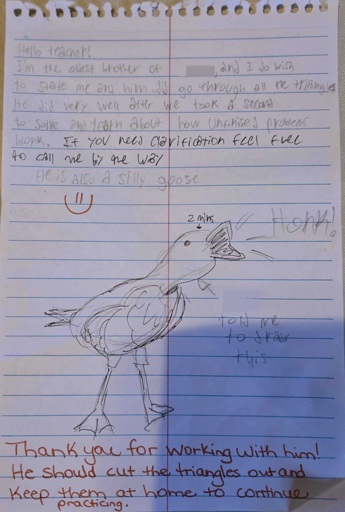 Hello teacher!
I'm the oldest brother of and I do wish
to state me and him did go through all the triangles
He did very well after we took a second
to solve and about how unfinised problems
work. If you need clarification feel free
to call me by the way
He is also a silly goose
2 mins
Honk!
told me
to draw
this
Thank you for working with him!
He should cut the triangles out and
keep them at home to continue
practicing.